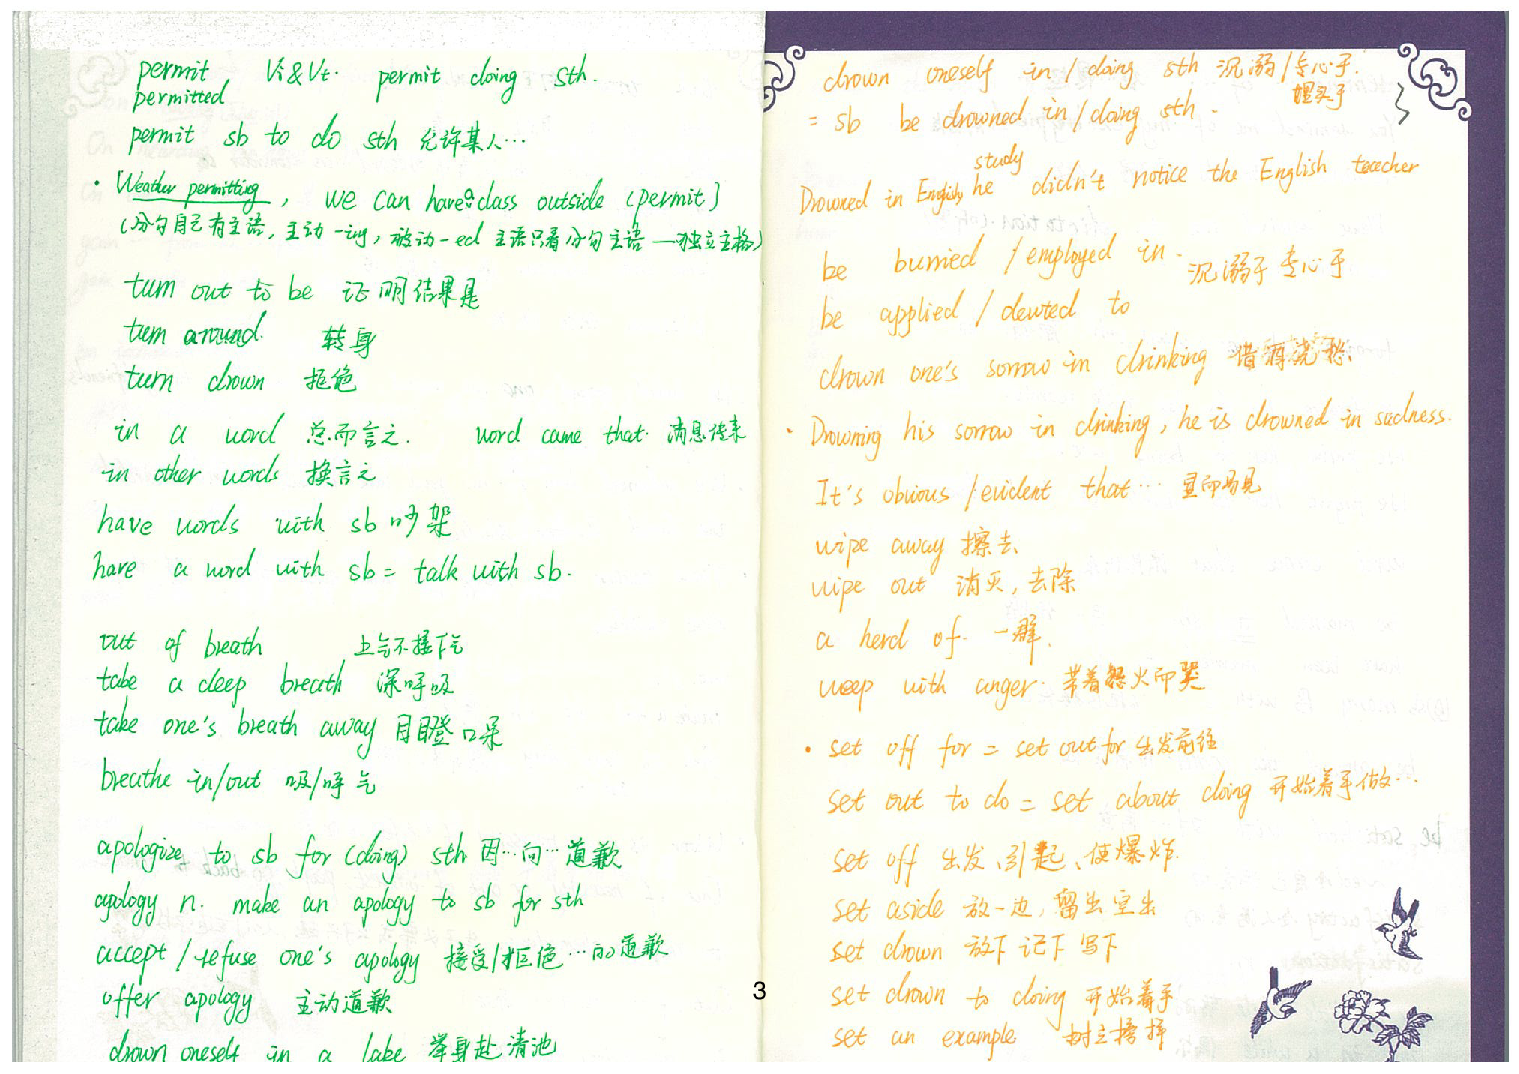 permit Vi&Vt. permit doing sth.
permitted
permit sb to do sth 允许某人…
· Weather permitting, we can have a class outside (permit)
(分句自己有主语, 主动-ing, 被动-ed 主语只看分句主语 — 独立主格)
turn out to be 证明结果是
turn around 转身
turn down 拒绝
in a word 总而言之. word came that 消息传来
in other words 换言之
have words with sb 吵架
have a word with sb = talk with sb.
out of breath 上气不接下气
take a deep breath 深呼吸
take one's breath away 目瞪口呆
breathe in/out 吸/呼气
apologize to sb for (doing) sth 因…向…道歉
apology n. make an apology to sb for sth
accept / refuse one's apology 接受/拒绝…的道歉
offer apology 主动道歉
drown oneself in a lake 举身赴清池
3
drown oneself in / doing sth 沉溺/专心于.
埋头于
= sb be drowned in / doing sth.
study
Drowned in English, he didn't notice the English teacher
be burried / employed in. 沉溺于 专心于
be applied / devoted to
drown one's sorrow in drinking 借酒浇愁.
· Drowning his sorrow in drinking, he is drowned in sadness.
It's obvious / evident that… 显而易见
wipe away 擦去.
wipe out 消灭, 去除
a herd of. 一群.
weep with anger. 带着怒火而哭
· set off for = set out for 出发前往
set out to do = set about doing 开始着手做…
set off 出发、引起、使爆炸.
set aside 放一边, 留出空出
set down 放下 记下 写下
set down to doing 开始着手
set an example 树立榜样